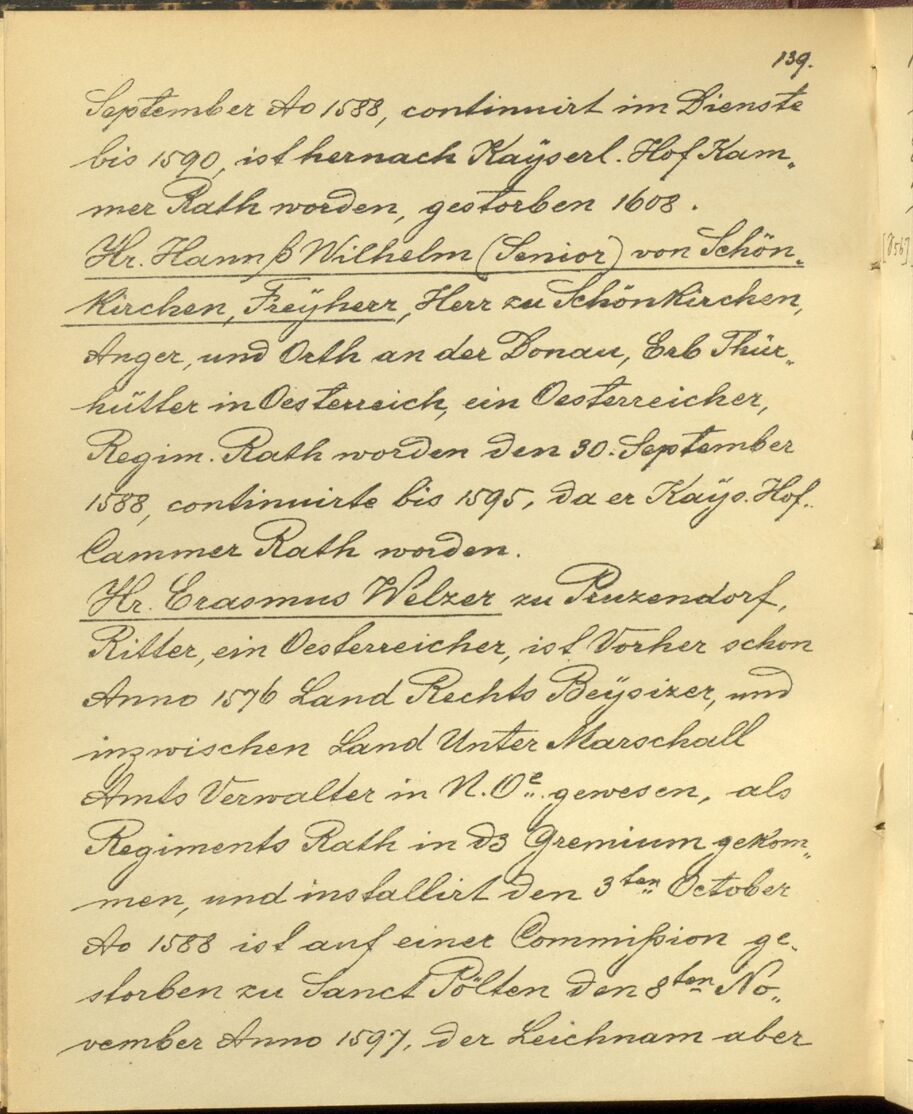 139.
September Ao 1588, continuirt im Dienste
bis 1590, ist hernach Kaÿserl. Hof Kam„
mer Rath worden, gestorben 1608.
Hr. Hannß Wilhelm (Senior) von Schön„
Kirchen, Freÿherr, Herr zu SchönKirchen,
Anger, und Orth an der Donau, Erb Thür„
hütter in Oesterreich, ein Oesterreicher,
Regim. Rath worden den 30. September
1588, continuirte bis 1595, da er Kaÿs. Hof„
Cammer Rath worden.
Hr. Erasmus Welzer zu Pruzendorf,
Ritter, ein Oesterreicher, ist Vorher schon
Anno 1576 Land Rechts Beÿsizer, und
inzwischen Land Unter Marschall
Amts Verwalter in N. Oe. gewesen, als
Regiments Rath in d3 Gremium gekom„
men, und installirt den 3ten October
Ao 1588 ist auf einer Commißion ge„
storben zu Sanct Pölten den 8ten No„
vember Anno 1597, der Leichnam aber
[856]